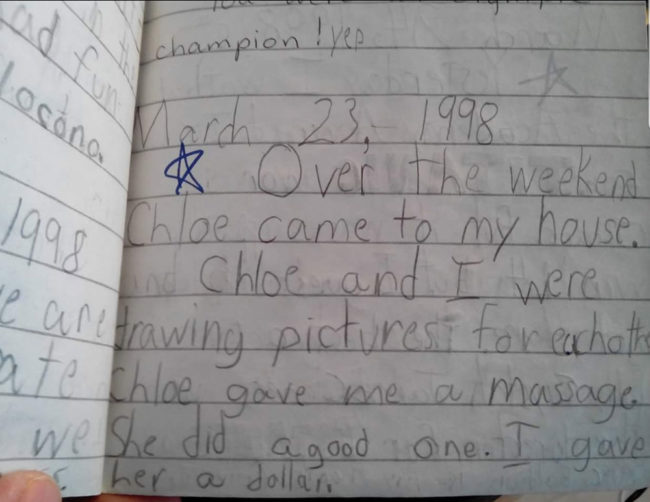 champion! yep
March 23, 1998
Over the weekend
Chloe came to my house.
Chloe and I were
drawing pictures for eachoth
Chloe gave me a massage
She did a good one. I gave
her a dollar.
ad fun
Locana.
1998
e are
ate
we